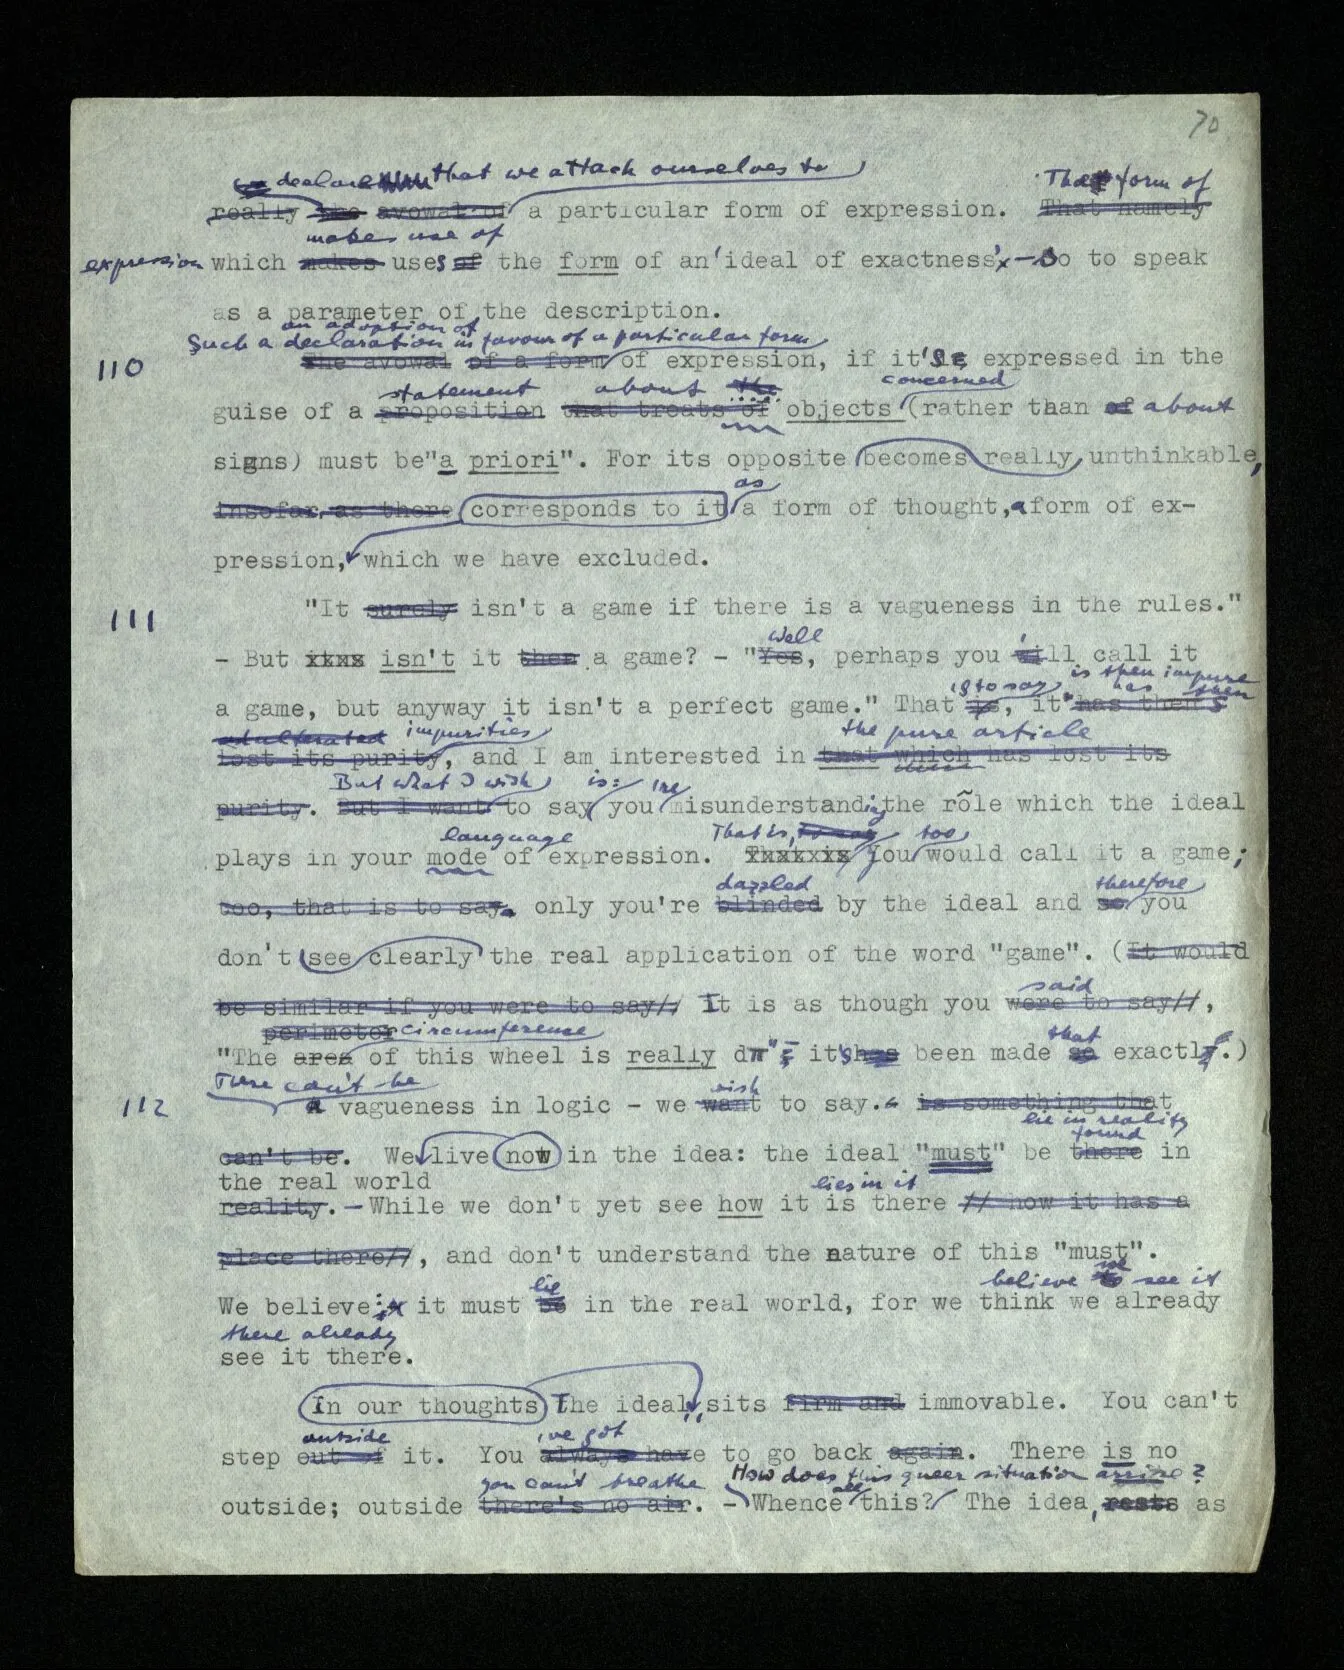 70
declare that we attach ourselves to That form of
really the avowal of a particular form of expression. That namely
makes use of
expression which makes uses of the form of an 'ideal of exactness' - so to speak
as a parameter of the description.
an adoption of
Such a declaration in favour of a particular form
110 The avowal of a form of expression, if it's expressed in the
statement about the concerned
guise of a proposition that treats of objects (rather than of about
signs) must be "a priori". For its opposite becomes really unthinkable,
as
insofar as there corresponds to it a form of thought, a form of ex-
pression, which we have excluded.
111 "It surely isn't a game if there is a vagueness in the rules."
Well
- But xxxx isn't it then a game? - "Yes, perhaps you'll call it
is to say is then impure has then
a game, but anyway it isn't a perfect game." That is, it has then
adulterated impurities the pure article
lost its purity, and I am interested in that which has lost its
But what I wish is:
purity. But I want to say you misunderstanding the rôle which the ideal
language That is, to say too
plays in your mode of expression. You would call it a game;
dazzled therefore
too, that is to say, only you're blinded by the ideal and so you
don't see clearly the real application of the word "game". (It would
said
be similar if you were to say// It is as though you were to say//,
perimeter circumference that
"The area of this wheel is really dπ" it's has been made so exactly.)
There can't be wish
112 a vagueness in logic - we want to say. is something that
lie in reality
found
can't be. We live now in the idea: the ideal "must" be there in
the real world lies in it
reality. - While we don't yet see how it is there // how it has a
place there//, and don't understand the nature of this "must".
lie believe we to see it
We believe: it must be in the real world, for we think we already
there already
see it there.
In our thoughts The ideal, sits firm and immovable. You can't
outside 've got
step out of it. You always have to go back again. There is no
you can't breathe How does this queer situation arise?
all
outside; outside there's no air. - Whence this? The idea, rests as